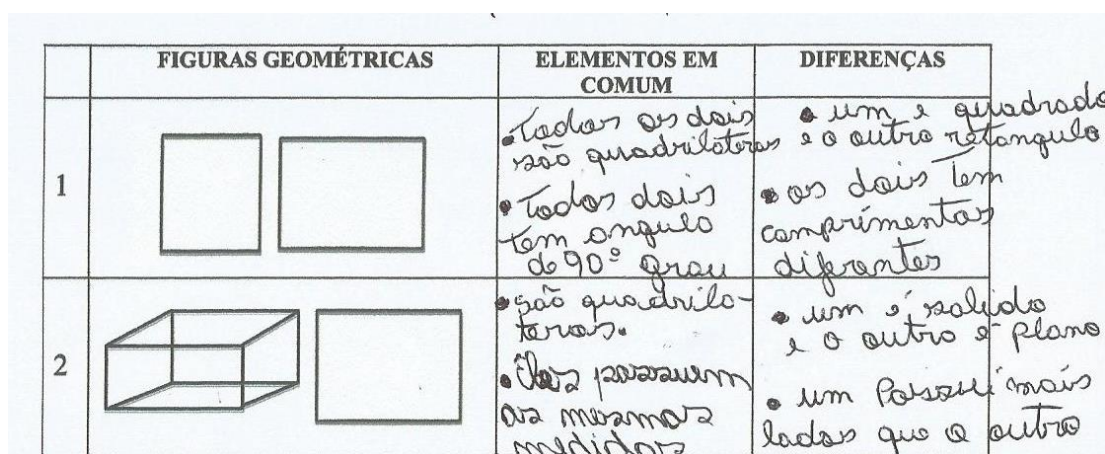 FIGURAS GEOMÉTRICAS
ELEMENTOS EM
COMUM
DIFERENÇAS
1
• Todos os dois
são quadriláteros
• Todos dois
tem ângulo
de 90° grau
• um é quadrado
e o outro retângulo
• os dois tem
comprimentos
diferentes
2
• são quadrilá-
teros.
• Eles possuem
as mesmas
medidas
• um é solido
e o outro é plano
• um Possui mais
lados que o outro